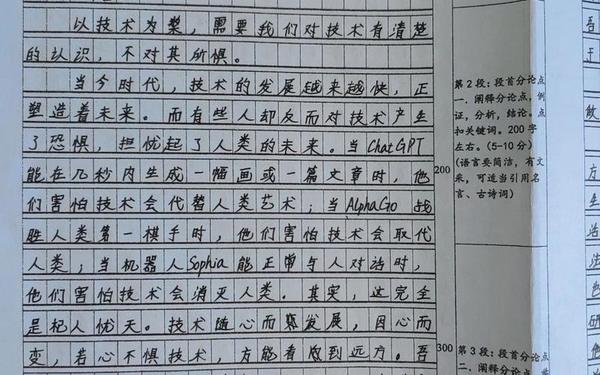 以技术为桨，需要我们对技术有清楚
的认识，不对其所惧。
当今时代，技术的发展越来越快，正
塑造着未来。而有些人却反而对技术产生
了恐惧，担忧起了人类的未来。当ChatGPT
能在几秒内生成一幅画或一篇文章时，他
们害怕技术会代替人类艺术；当AlphaGo战
胜人类第一棋手时，他们害怕技术会取代
人类；当机器人Sophia能正常与人对话时，
他们害怕技术会消灭人类。其实，这完全
是杞人忧天。技术随心而发展，因心而
变，若心不惧技术，方能看到远方。吾
200
300
第2段：段首分论点
一、阐释分论点，例
证，分析，结论。点
扣关键词。200字
左右。（5-10分）
（语言要简洁，有文
采，可适当引用名
言、古诗词）
第3段：段首分论点
二、阐释分论点，
吾
于
敢
方
生
治
法
色
研